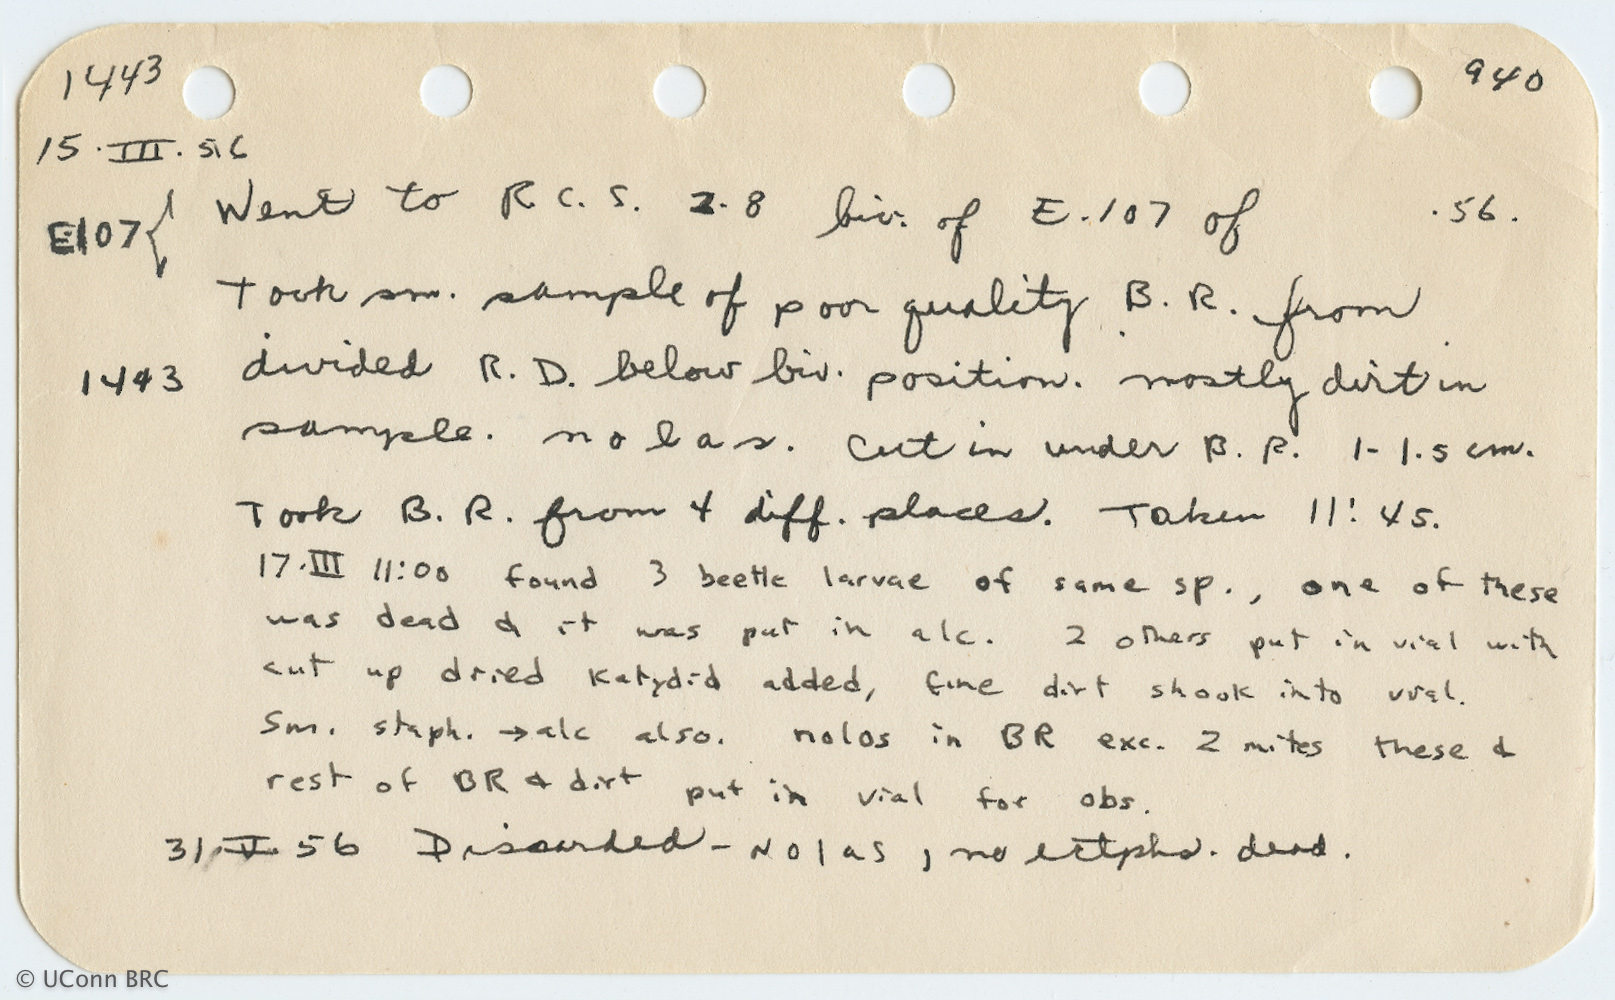 1443 940
15.III.56
E107 { Went to R.C.S. 2.8 biv. of E.107 of .56.
Took sm. sample of poor quality B.R. from
1443 divided R.D. below biv. position. mostly dirt in
sample. no las. Cut in under B.R. 1-1.5 cm.
Took B.R. from 4 diff. places. Taken 11:45.
17.III 11:00 found 3 beetle larvae of same sp., one of these
was dead & it was put in alc. 2 others put in vial with
cut up dried katydid added, fine dirt shook into vial.
Sm. staph. → alc also. nolos in BR exc. 2 mites these &
rest of BR & dirt put in vial for obs.
31.V.56 Discarded - Nolas, no dead.
© UConn BRC